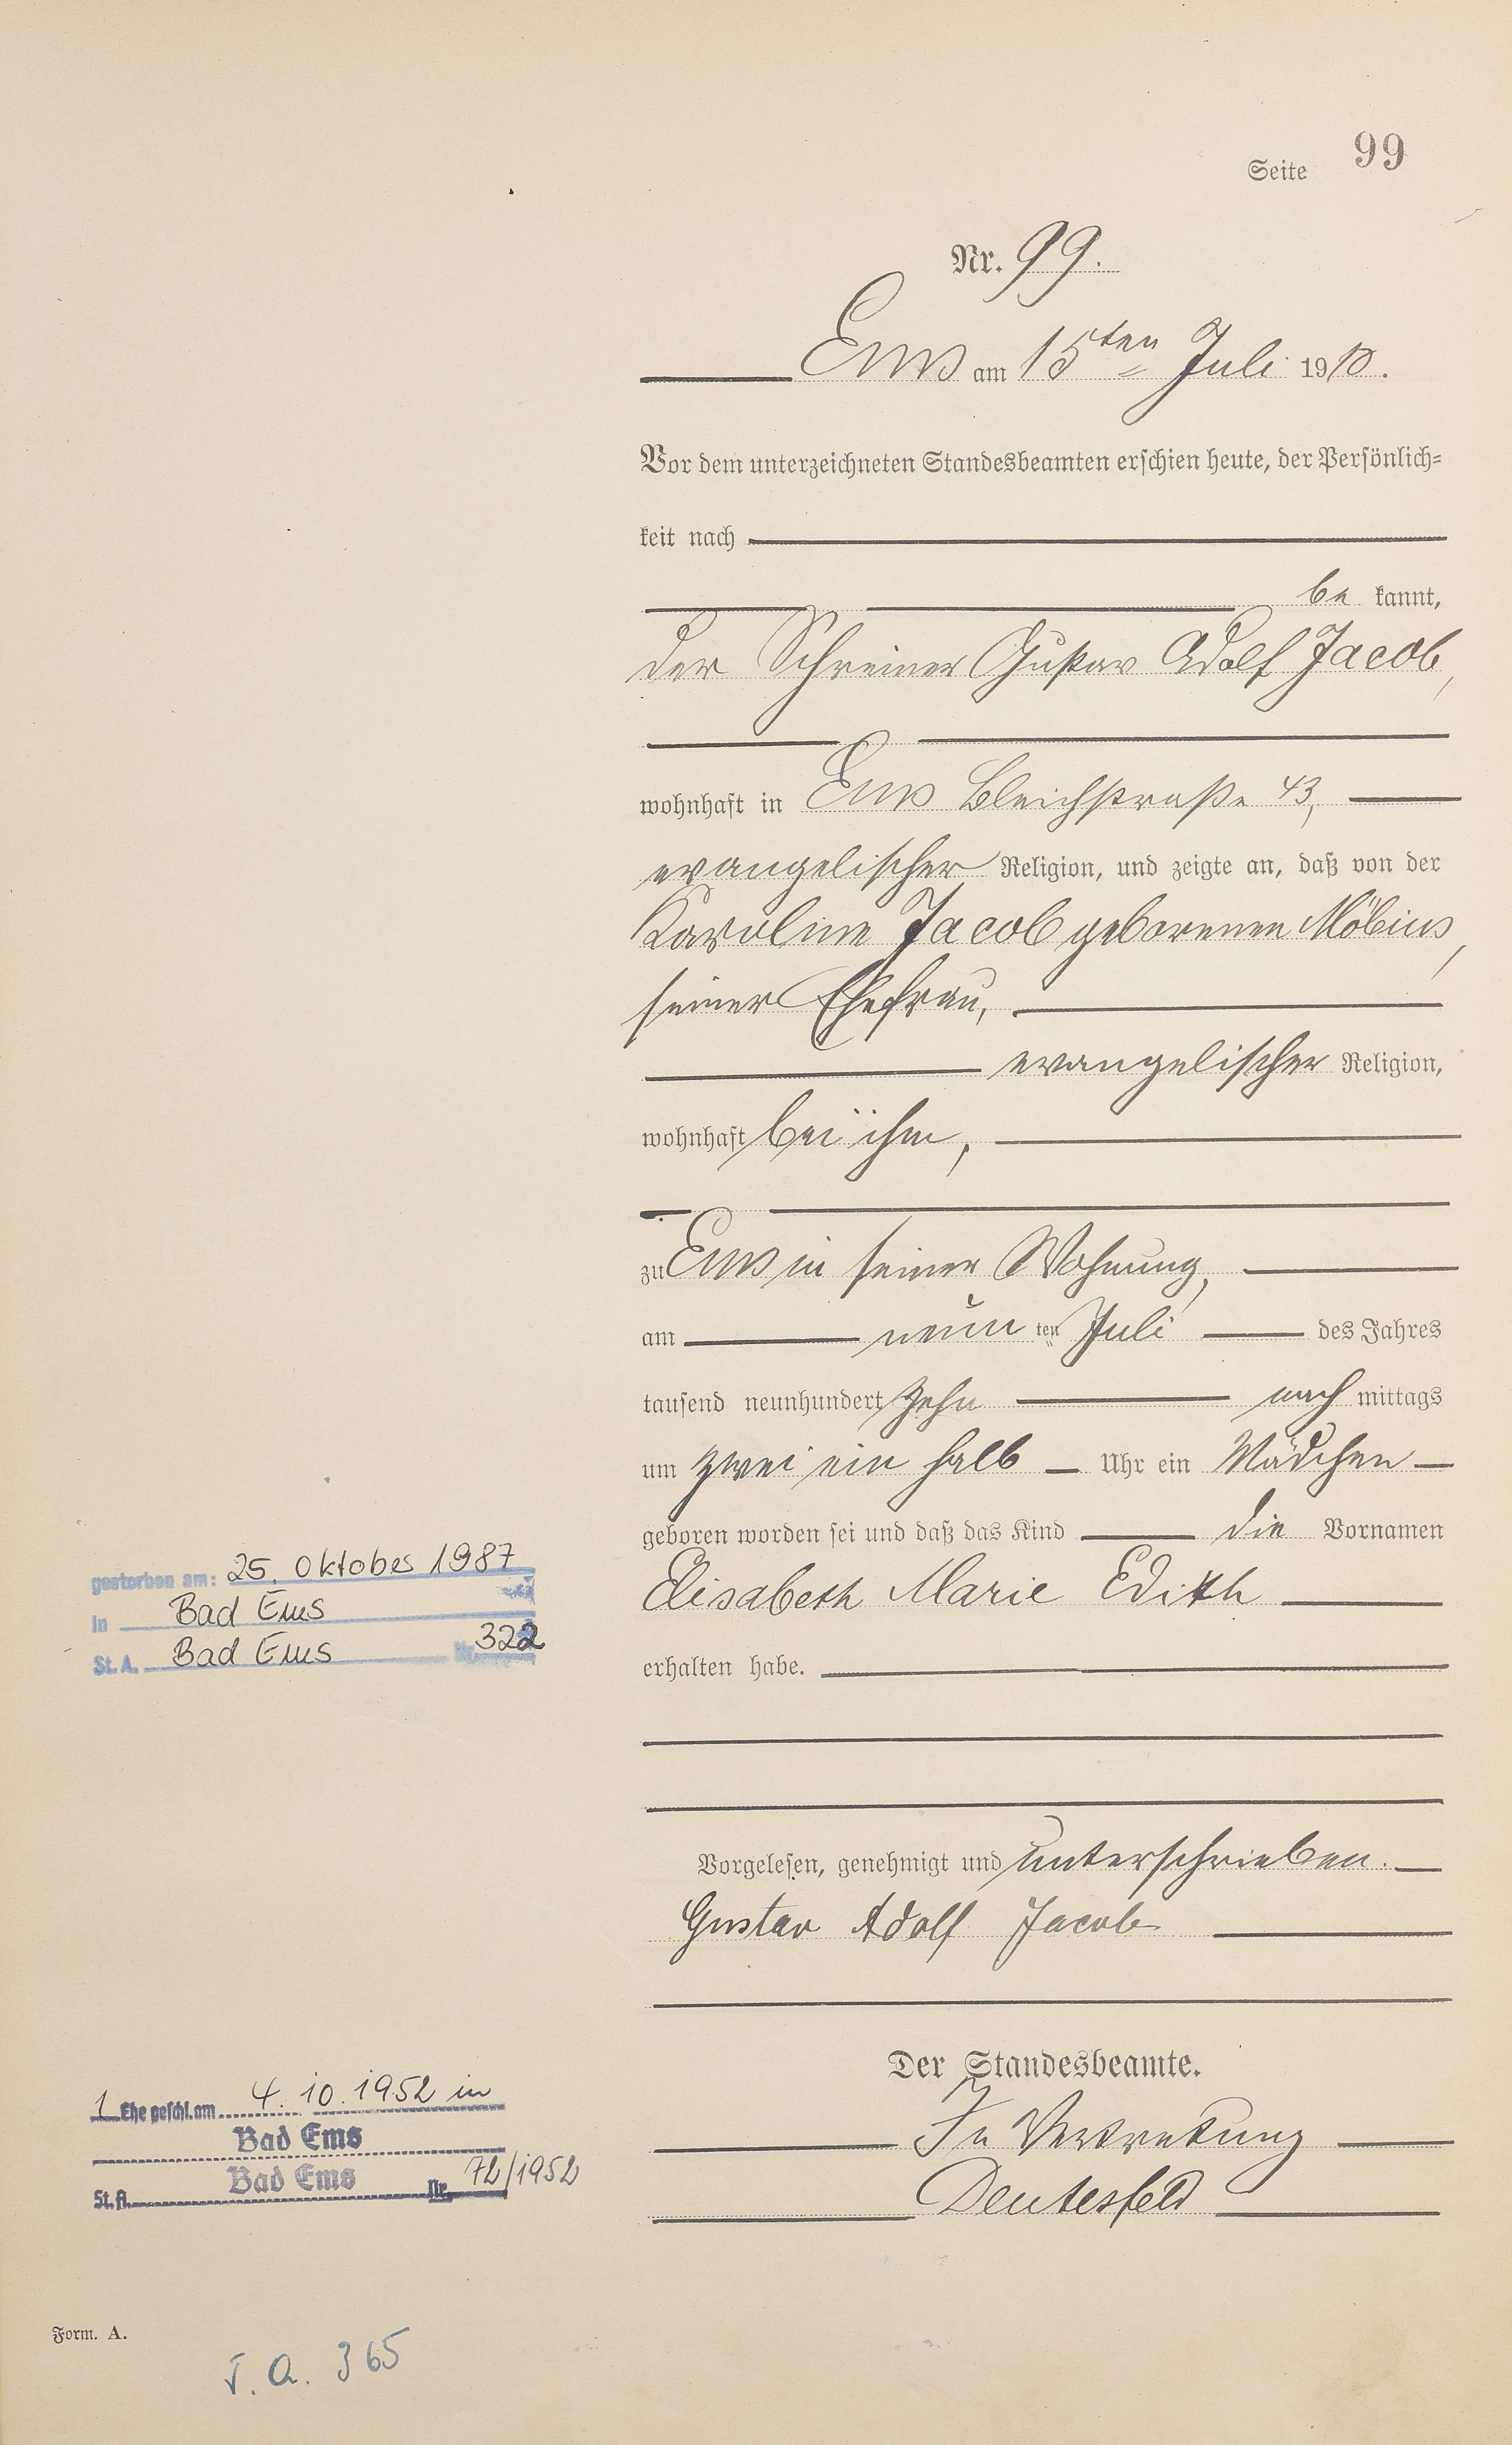 Seite 99
Nr. 99.
Ems am 15ten Juli 1910.
Vor dem unterzeichneten Standesbeamten erschien heute, der Persönlich=
keit nach
be kannt,
der Schreiner Gustav Adolf Jacob,
wohnhaft in Ems Bleichstraße 43,
evangelischer Religion, und zeigte an, daß von der
Karoline Jacob geborenen Möbius,
seiner Ehefrau,
evangelischer Religion,
wohnhaft bei ihm,
zu Ems in seiner Wohnung,
am neun ten Juli des Jahres
tausend neunhundert zehn nach mittags
um zwei ein halb Uhr ein Mädchen
geboren worden sei und daß das Kind die Vornamen
Elisabeth Marie Edith
erhalten habe.
Vorgelesen, genehmigt und unterschrieben.
Gustav Adolf Jacob
Der Standesbeamte.
In Vertretung
Deutesfeld
gestorben am: 25. Oktober 1987
in Bad Ems
St. A. Bad Ems Nr. 322
1 Ehe geschl. am 4. 10. 1952 in
Bad Ems
St. A. Bad Ems Nr. 72/1952
Form. A.
T. A. 365